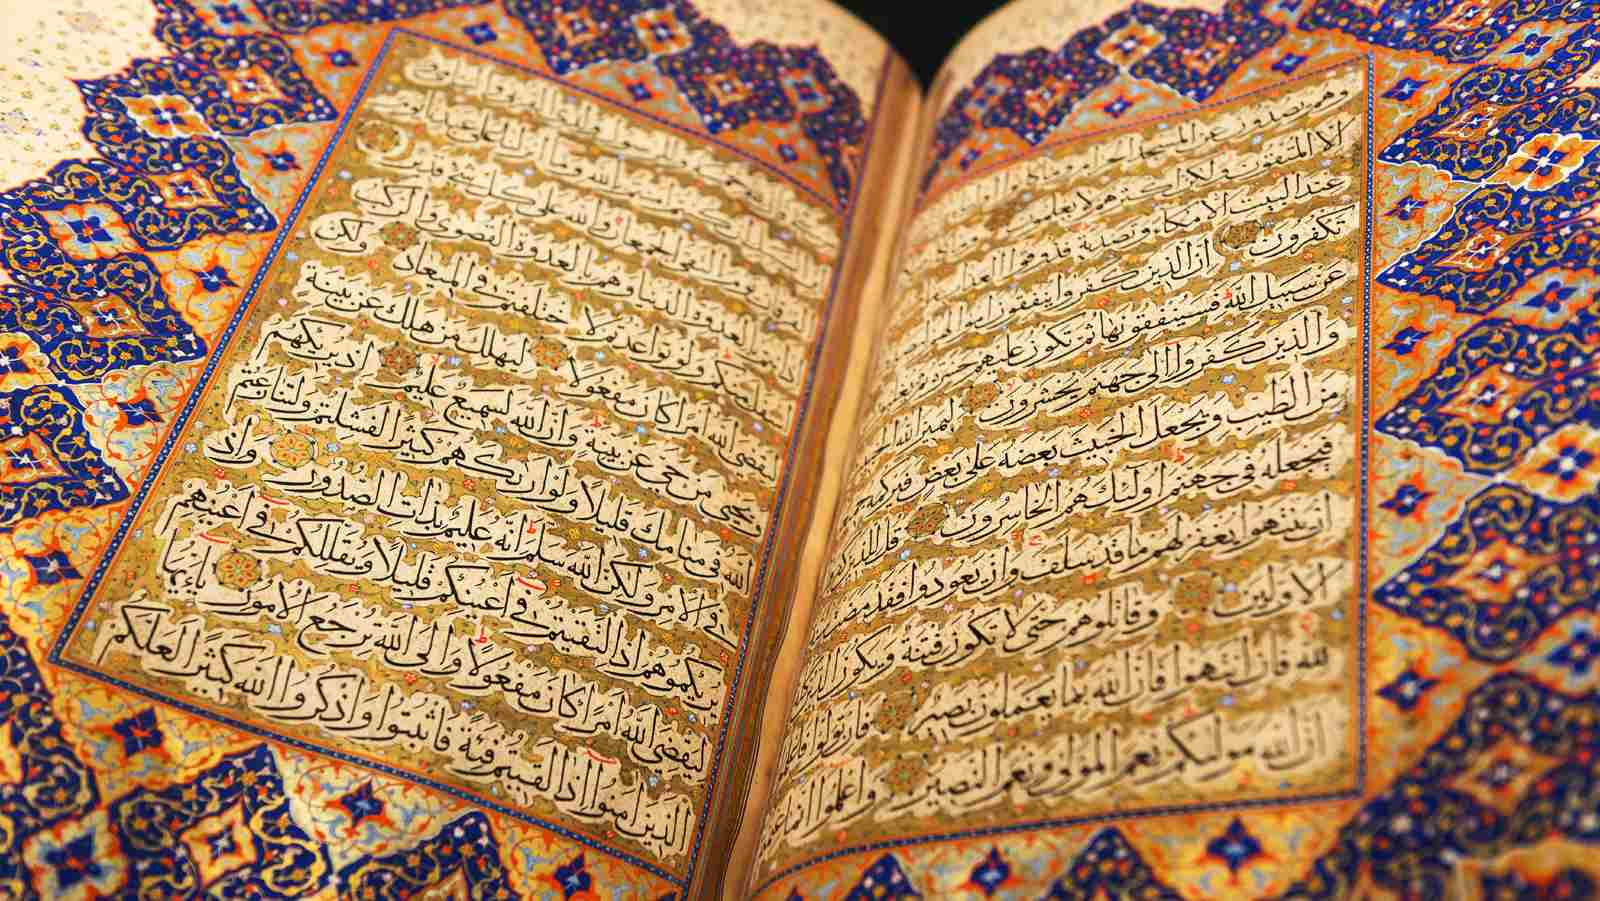 وهم يصدون عن المسجد الحرام
الا المتقون ولكن اكثرهم لا يعلمون
عند البيت الا مكاء وتصدية فذوقوا العذاب
تكفرون ان الذين كفروا ينفقون اموالهم
عن سبيل الله فسينفقونها ثم تكون عليهم حسرة ثم يغلبون
والذين كفروا الى جهنم يحشرون ليميز الله الخبيث
من الطيب ويجعل الخبيث بعضه على بعض فيركمه
فيجعله في جهنم اولئك هم الخاسرون قل للذين
ان ينتهوا يغفر لهم ما قد سلف وان يعودوا فقد مضت
الاولين وقاتلوهم حتى لا تكون فتنة ويكون الدين
لله فان انتهوا فان الله بما يعملون بصير وان تولوا فاعلموا
ان الله موليكم نعم المولى ونعم النصير واعلموا انما غنمتم
بالله وما انزلنا على عبدنا يوم
الفرقان يوم التقى الجمعان والله على كل شيء قدير
اذ انتم بالعدوة الدنيا وهم بالعدوة القصوى والركب
اسفل منكم ولو تواعدتم لاختلفتم في الميعاد ولكن
ليقضي الله امرا كان مفعولا ليهلك من هلك عن بينة
ويحيى من حي عن بينة وان الله لسميع عليم اذ يريكهم
الله في منامك قليلا ولو اريكهم كثيرا لفشلتم ولتنازعتم
في الامر ولكن الله سلم انه عليم بذات الصدور واذ
يريكموهم اذ التقيتم في اعينكم قليلا ويقللكم في اعينهم
ليقضي الله امرا كان مفعولا والى الله ترجع الامور ياءيها
الذين امنوا اذا لقيتم فئة فاثبتوا واذكروا الله كثيرا لعلكم